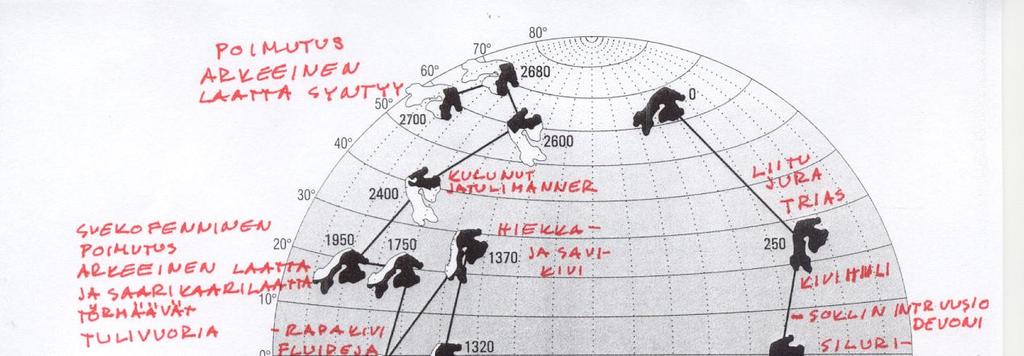 80°
70°
60°
50°
40°
30°
20°
10°
0°
POIMUTUS
ARKEEINEN
LAATTA SYNTYY
2680
2700
2600
0
2400
KULUNUT
JATULIMANNER
LIITU
JURA
TRIAS
SVEKOFENNINEN
POIMUTUS
ARKEEINEN LAATTA
JA SAARIKAARILAATTA
TÖRMÄÄVÄT
TULIVUORIA
1950
1750
HIEKKA-
JA SAVI-
KIVI
1370
250
KIVIHIILI
- SOKLIN INTRUUSIO
DEVONI
SILURI-
- RAPAKIVI
FLUIDEJA
1320